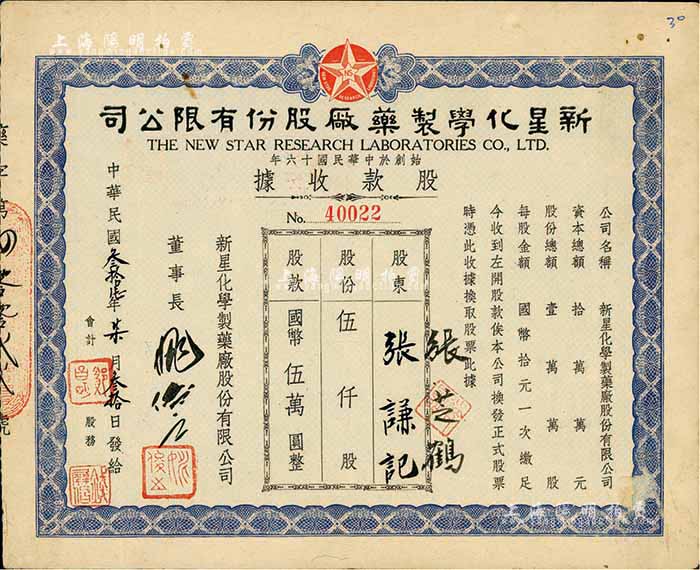 上海陽明拍賣
30
NS
RESEARCH
新星化學製藥廠股份有限公司
THE NEW STAR RESEARCH LABORATORIES CO., LTD.
始創於中華民國十六年
股款收據
No. 40022
公司名稱 新星化學製藥廠股份有限公司
資本總額 拾萬萬元
股份總額 壹萬萬股
每股金額 國幣拾元一次繳足
今收到左開股款俟本公司換發正式股票
時憑此收據換取股票此據
張芝鶴
股東 張謙記
股份 伍仟股
股款 國幣伍萬圓整
新星化學製藥廠股份有限公司
董事長
中華民國叁拾柒年柒月叁拾日發給
會計
股務
藥字第
號
上海陽明拍賣
上海陽明拍賣